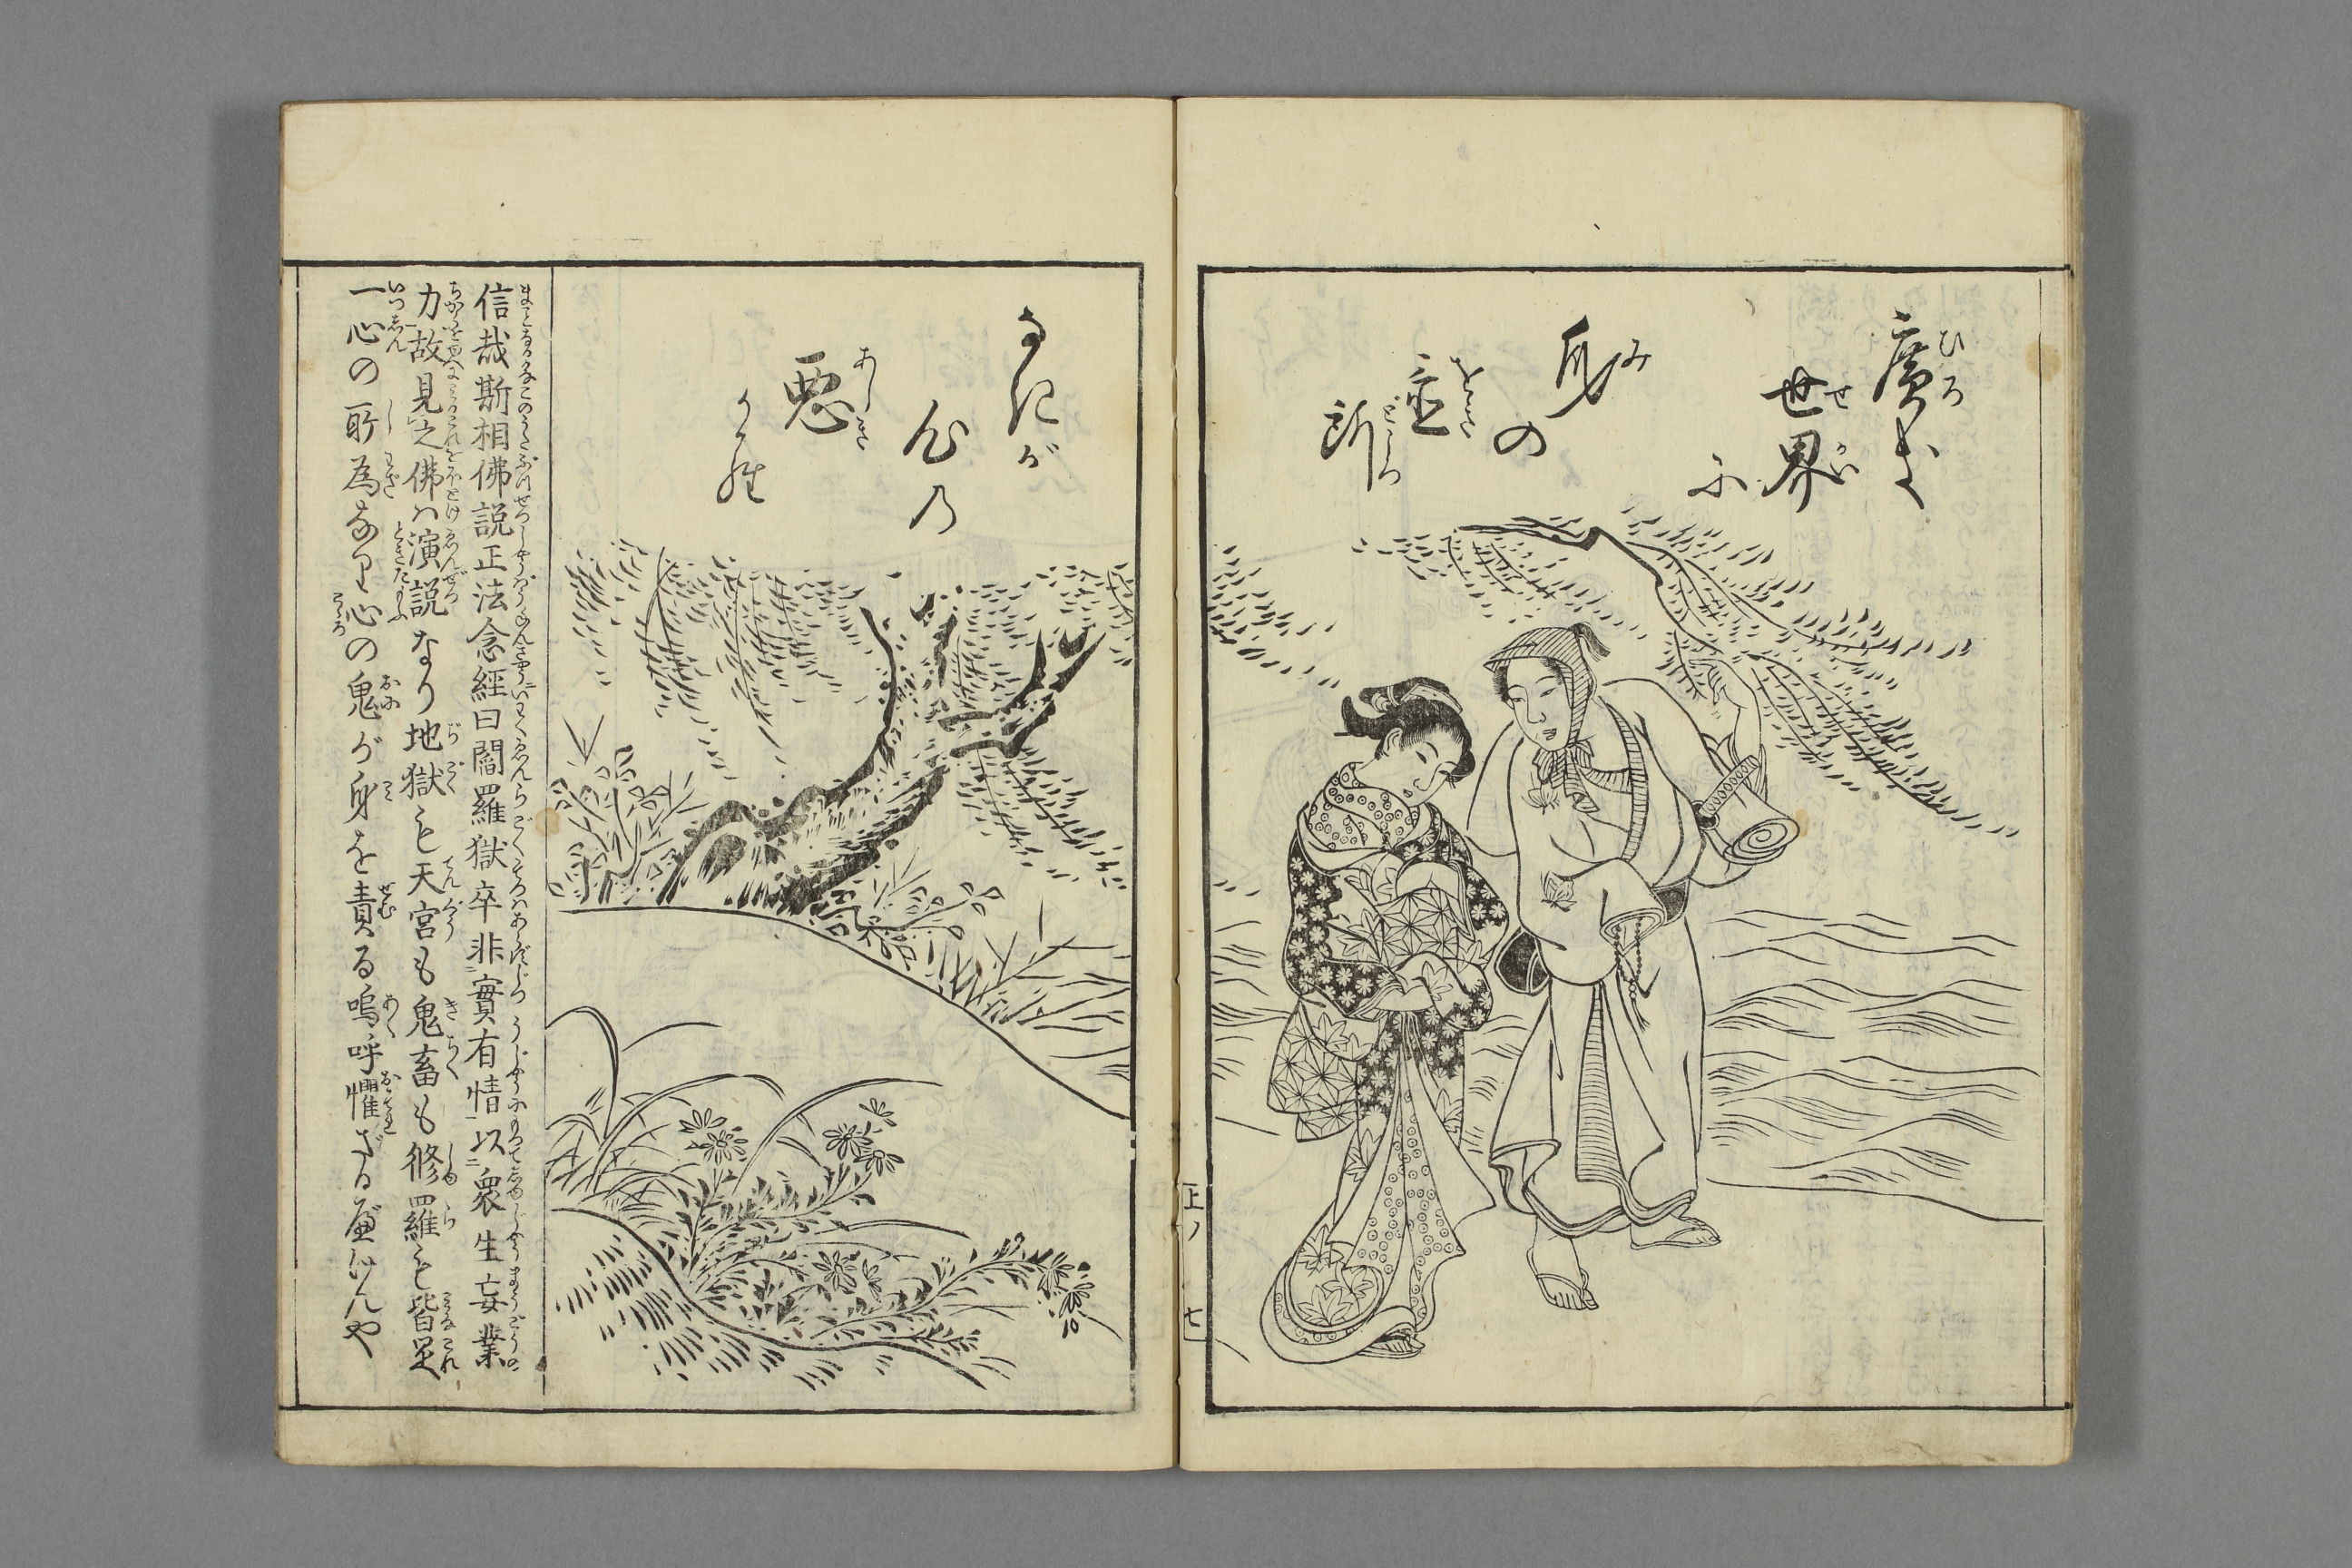 廣き
世界
に
身
の
置
所
なきが
心の
悪
き故
信哉斯相佛説正法念經曰閻羅獄卒非實有情以衆生妄業
力故見之佛ハ演説なり地獄も天宮も鬼畜も修羅も皆是
一心の所為なり心の鬼が身を責る嗚呼懼ざる
正ノ
七